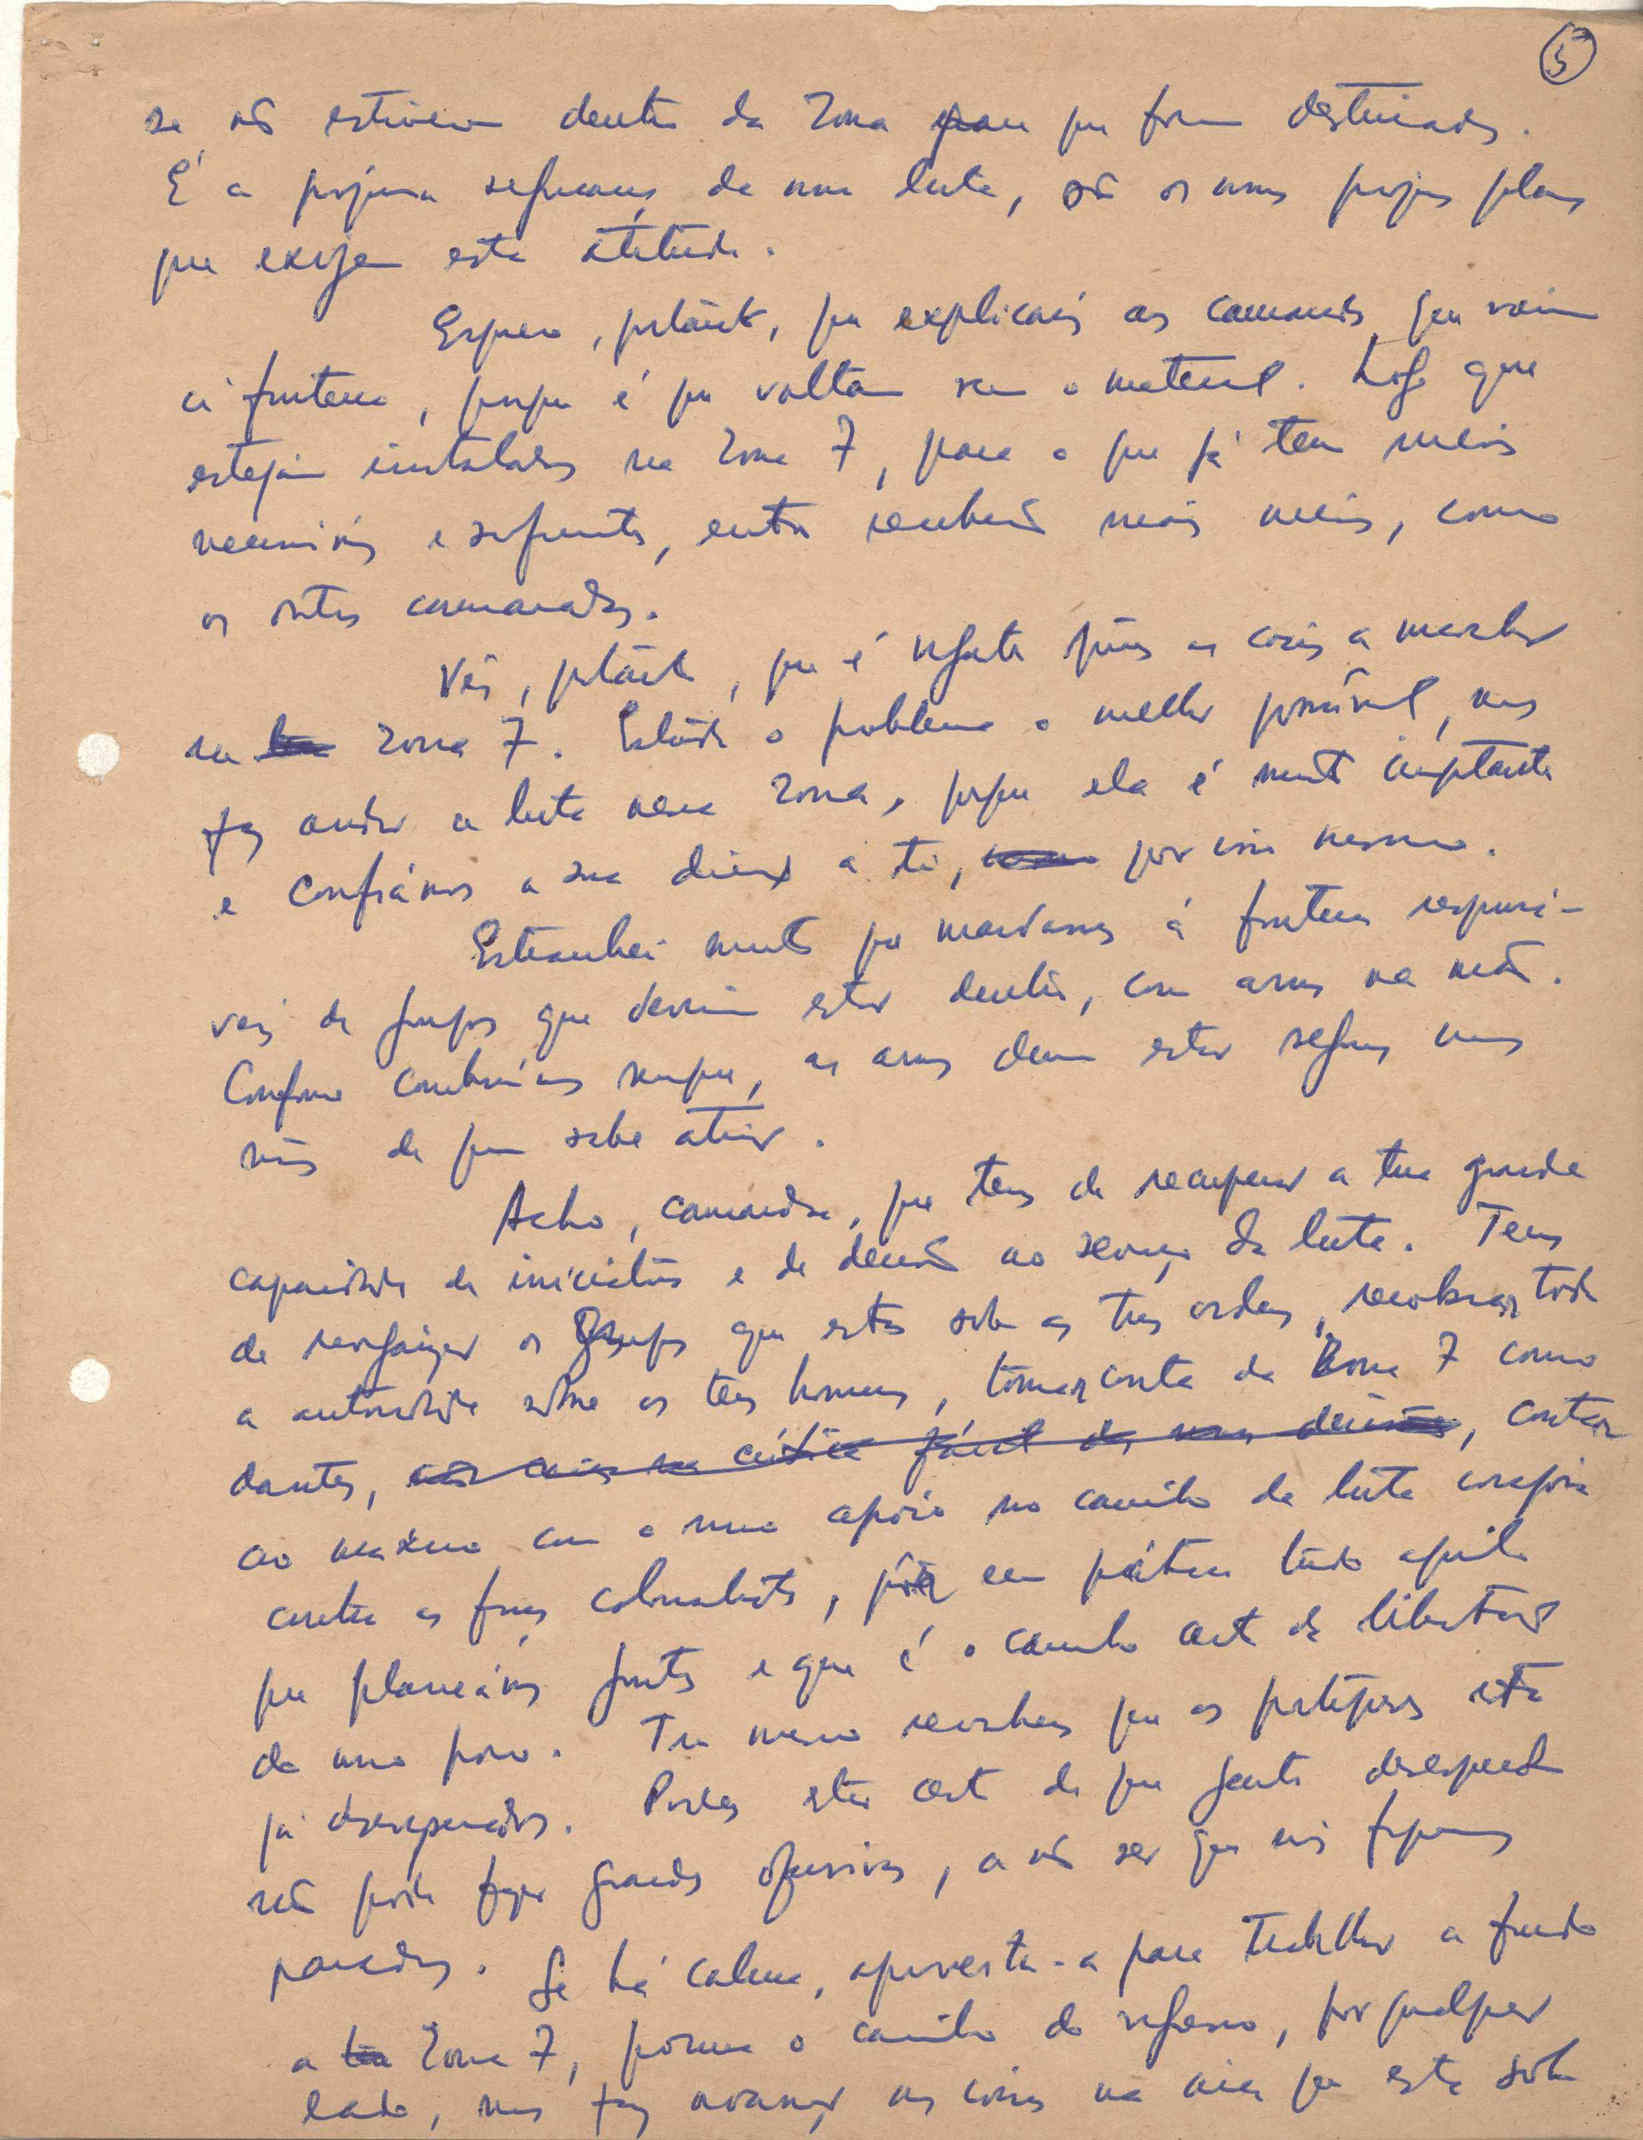 5
se não estiverem dentro da Zona para que foram destinados.
É a própria segurança da nossa luta, são os nossos próprios planos
que exigem esta atitude.
Espero, portanto, que explicarás aos camaradas que vieram
à fronteira, porque é que voltam sem o material. Logo que
estejam instalados na Zona 7, para o que já têm meios
necessários e suficientes, então receberão mais meios, como
os outros camaradas.
Vês, portanto, que é urgente pôres as coisas a marchar
na Zona 7. Estuda o problema o melhor possível, mas
faz andar a luta nessa Zona, porque ela é muito importante
e confiámos a sua direcção a ti, por isso mesmo.
Estranhei muito que mandasses à fronteira responsá-
veis de grupos que deviam estar dentro, com armas na mão.
Conforme combinámos sempre, as armas devem estar seguras nas
mãos de quem sabe atirar.
Acho, camarada, que tens de recuperar a tua grande
capacidade de iniciativa e de decisão ao serviço da luta. Tens
de reorganizar os Grupos que estão sob as tuas ordens, recobrar toda
a autoridade sobre os teus homens, tomar conta da Zona 7 como
dantes, contar
ao máximo com o nosso apoio no caminho da luta corajosa
contra as forças colonialistas, pôr em prática tudo aquilo
que planeámos juntos e que é o caminho certo de libertar
do nosso povo. Tu mesmo reconheces que os portugueses estão
já desesperados. Podes estar certo de que gente desesperada
não pode fazer grandes ofensivas, a não ser que nós fiquemos
parados. Se há calma, aproveita-a para trabalhar a fundo
a Zona 7, procura o caminho do regresso, por qualquer
lado, mas faz avançar as coisas na área que está sob